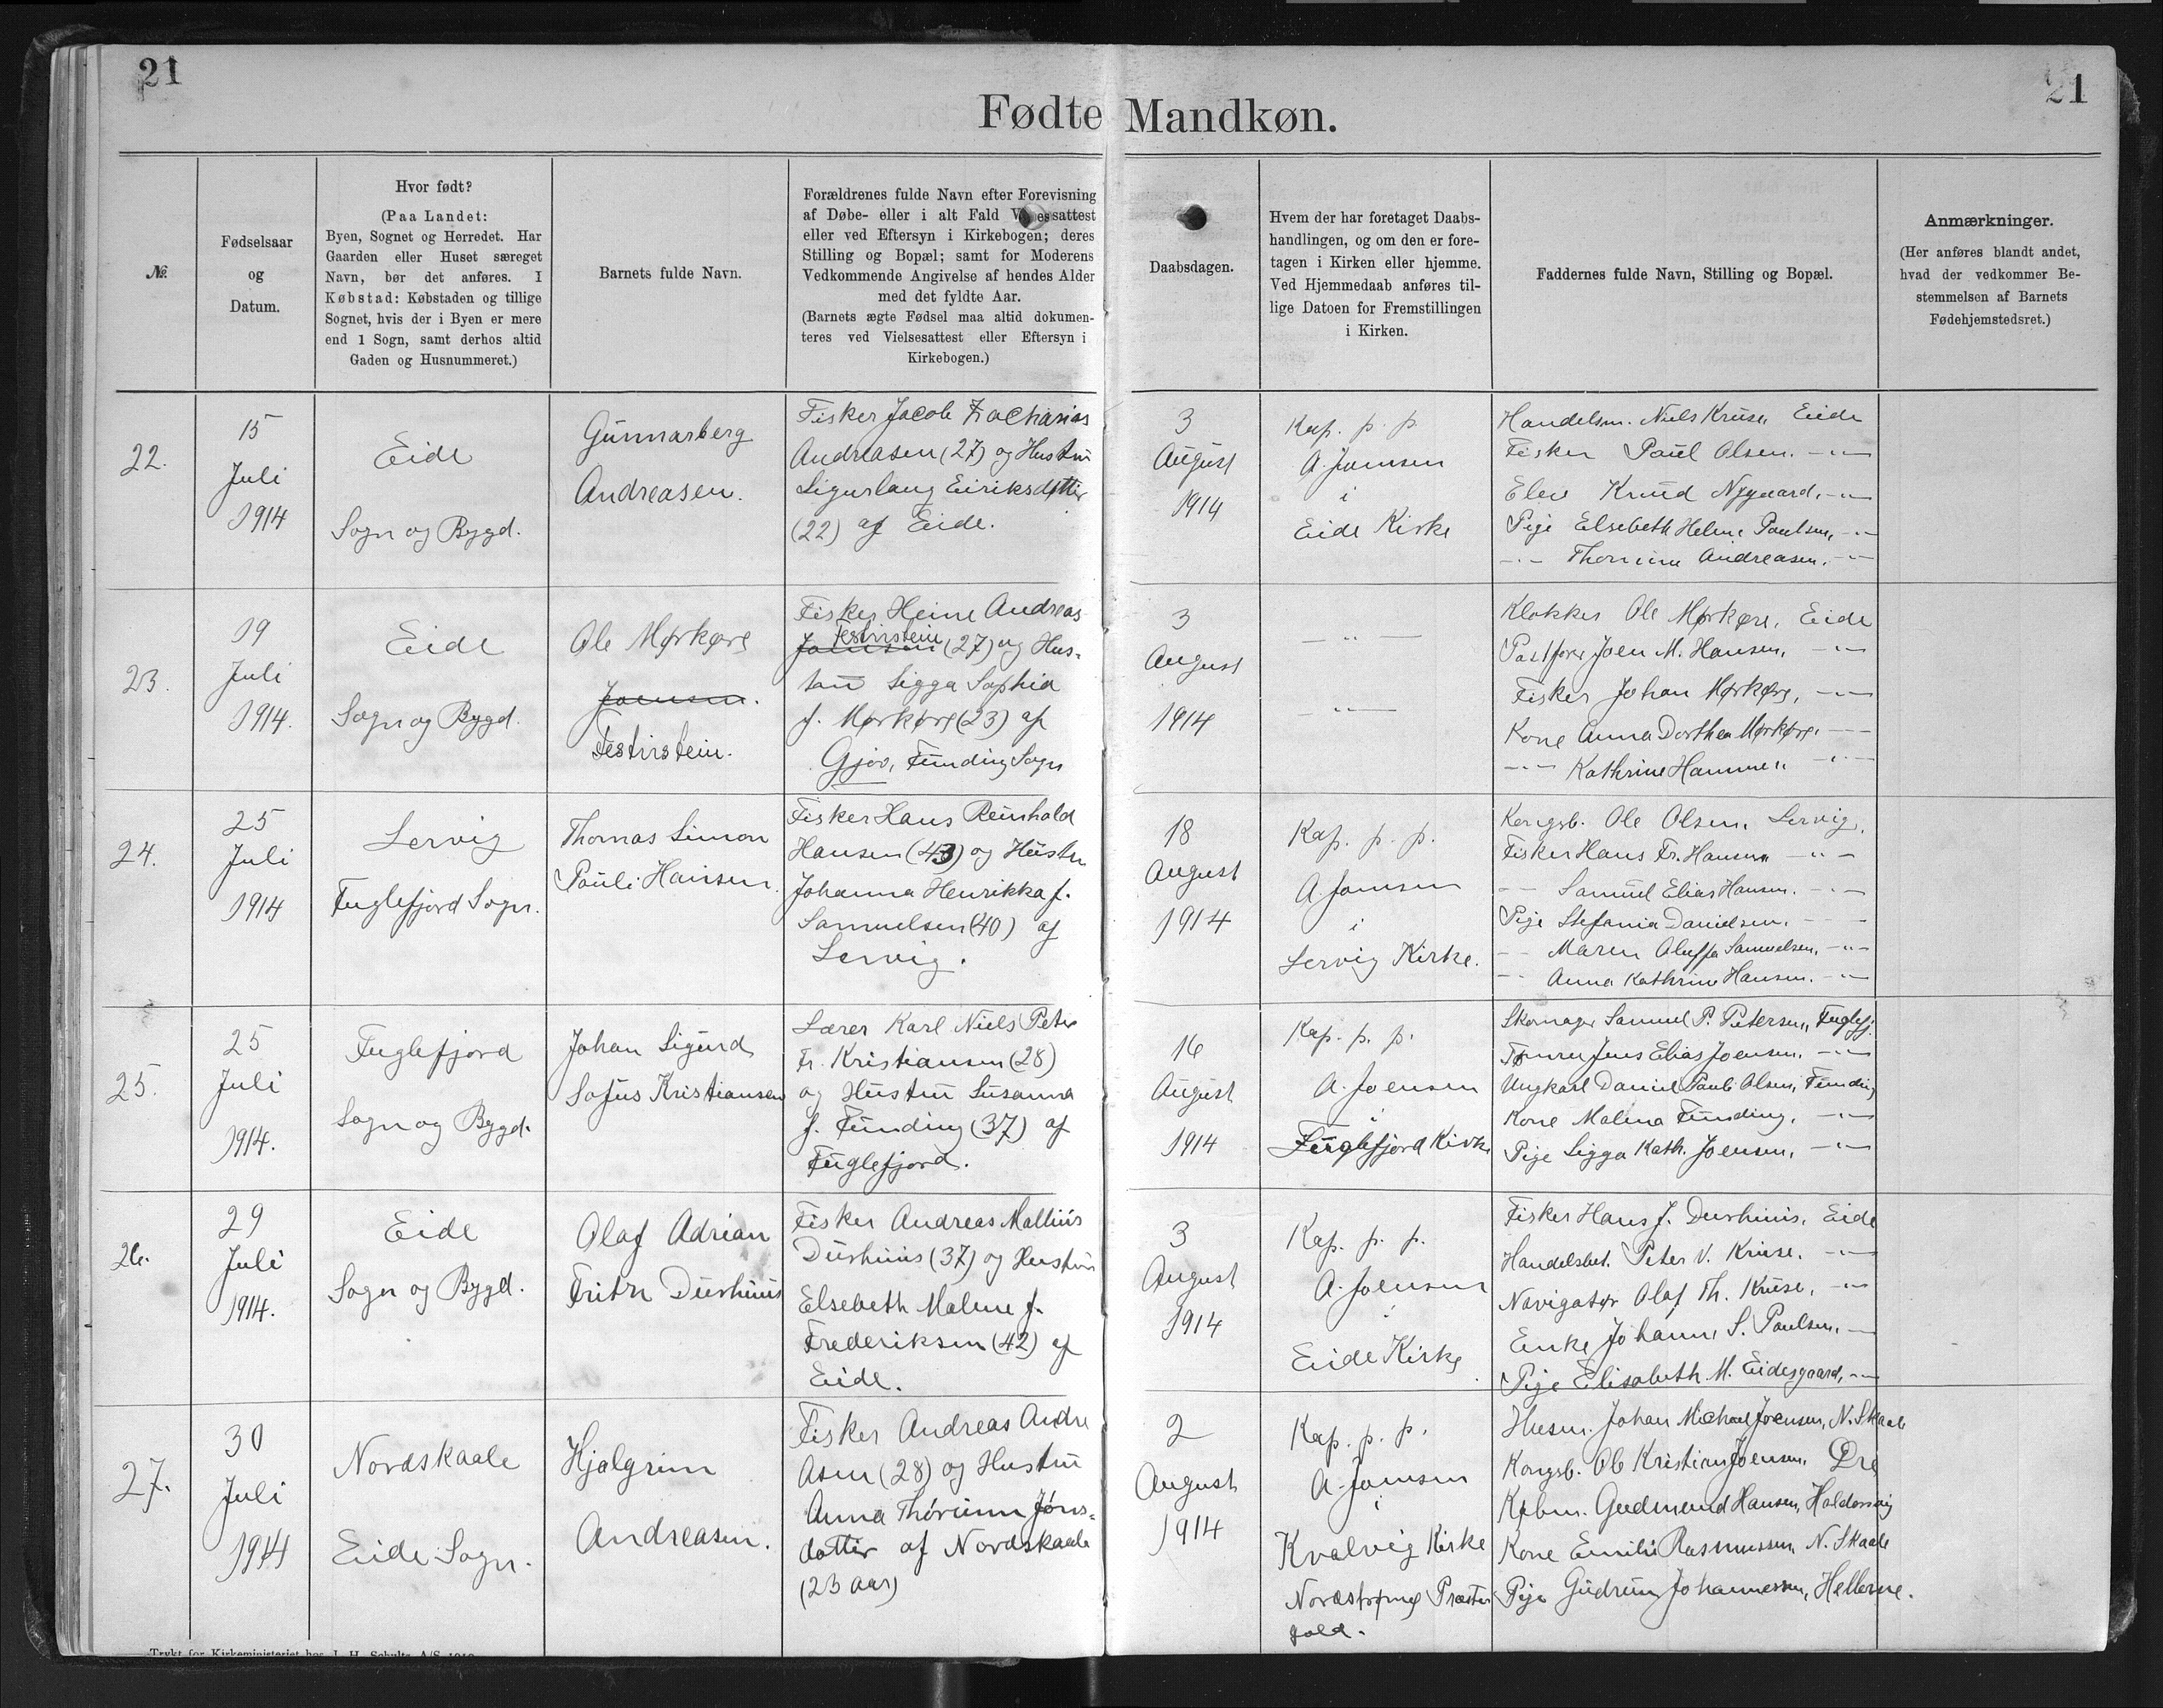 21
21
Fødte Mandkøn.
№.
Fødselsaar
og
Datum.
Hvor født?
(Paa Landet:
Byen, Sognet og Herredet. Har
Gaarden eller Huset særeget
Navn, bør det anføres. I
Købstad: Købstaden og tillige
Sognet, hvis der i Byen er mere
end 1 Sogn, samt derhos altid
Gaden og Husnummeret.)
Barnets fulde Navn.
Forældrenes fulde Navn efter Forevisning
af Døbe- eller i alt Fald V essattest
eller ved Eftersyn i Kirkebogen; deres
Stilling og Bopæl; samt for Moderens
Vedkommende Angivelse af hendes Alder
med det fyldte Aar.
(Barnets ægte Fødsel maa altid dokumen-
teres ved Vielsesattest eller Eftersyn i
Kirkebogen.)
Daabsdagen.
Hvem der har foretaget Daabs-
handlingen, og om den er fore-
tagen i Kirken eller hjemme.
Ved Hjemmedaab anføres til-
lige Datoen for Fremstillingen
i Kirken.
Faddernes fulde Navn, Stilling og Bopæl.
Anmærkninger.
(Her anføres blandt andet,
hvad der vedkommer Be-
stemmelsen af Barnets
Fødehjemstedsret.)
22.
15
Juli
1914
Eide
Sogn og Bygd.
Gunnarberg
Andreasen.
Fisker Jacob Zacharias
Andreasen (27) og Hustru
Sigurlaug Eiriksdøttir
(22) af Eide.
3
August
1914
Kap. p. p.
A. Joensen
i
Eide Kirke
Handelsm. Niels Kruse, Eide
Fisker Paul Olsen. -"-
Elev Knud Nygaard, -"-
Pige Elsebeth Helene Paulsen, -"-
-"- Thomine Andreasen. -"-
23.
19
Juli
1914.
Eide
Sogn og Bygd.
Ole Mørkøre
Joensen.
Festirstein.
Fisker Heine Andreas
Festirstein
Joensen (27) og Hus-
tru Sigga Sophia
f. Mørkøre (23) af
Gjov, Funding Sogn
3
August
1914
-"-
-"-
Klokker Ole Mørkøre, Eide
Postfører Joen M. Hansen, -"-
Fisker Johan Mørkøre, -"-
Kone Anna Dorthea Mørkøre. -"-
-"- Kathrine Hammer. -"-
24.
25
Juli
1914
Lervig
Fuglefjord Sogn.
Thomas Simon
Pauli Hansen.
Fisker Hans Reinhold
Hansen (43) og Hustru
Johanna Henrikka f.
Samuelsen (40) af
Lervig.
18
August
1914
Kap. p. p.
A. Joensen
i
Lervig Kirke.
Kongsb. Ole Olsen, Lervig.
Fisker Hans Fr. Hansen -"-
-"- Samuel Elias Hansen. -"-
Pige Stefania Danielsen. -"-
-"- Maren Aluffa Samuelsen, -"-
-"- Anna Kathrine Hansen. -"-
25.
25
Juli
1914.
Fuglefjord
Sogn og Bygd.
Johan Sigurd
Sofus Kristiansen
Lærer Karl Niels Peter
Fr. Kristiansen (28)
og Hustru Susanna
f. Funding (37) af
Fuglefjord.
16
August
1914
Kap. p. p.
A. Joensen
i
Fuglefjord Kirke
Skomager Samuel P. Petersen, Fuglefj.
Tømrer Jens Elias Joensen. -"-
Ungkarl Daniel Pauli Olsen, Funding
Kone Malena Funding, -"-
Pige Sigga Kath. Joensen, -"-
26.
29
Juli
1914.
Eide
Sogn og Bygd.
Olaf Adrian
Fritz Durhuus
Fisker Andreas Mallius
Durhuus (37) og Hustru
Elsebeth Malene f.
Frederiksen (42) af
Eide.
3
August
1914
Kap. p. p.
A. Joensen
i
Eide Kirke
Fisker Hans J. Durhuus, Eide
Handelsbet. Peter V. Kruse. -"-
Navigatør Olaf Th. Kruse, -"-
Enke Johanne S. Poulsen, -"-
Pige Elisabeth M. Eidesgaard, -"-
27.
30
Juli
1914
Nordskaale
Eide Sogn.
Hjalgrim
Andreasen.
Fisker Andreas Andre
asen (28) og Hustru
Anna Thórunn Jóns-
dottir af Nordskaale
(23 aar)
2
August
1914
Kap. p. p.
A. Joensen
i
Kvalvig Kirke
Nordstrømø Præste
gæld.
Husm. Johan Michael Joensen, N. Skaale
Kongsb. Ole Kristian Joensen, Øre
Købm. Gudmund Hansen, Haldorsvig
Kone Emilie Rasmussen, N. Skaale
Pige Gudrun Johannessen, Hellerne.
Trykt for Kirkeministeriet hos J. H. Schultz A/S